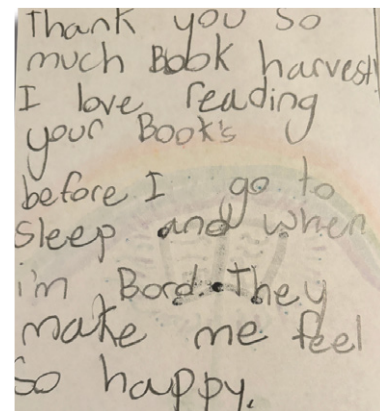 Thank you so
much Book harvest!
I love reading
your Book's
before I go to
sleep and when
i'm Bord. They
make me feel
so happy.